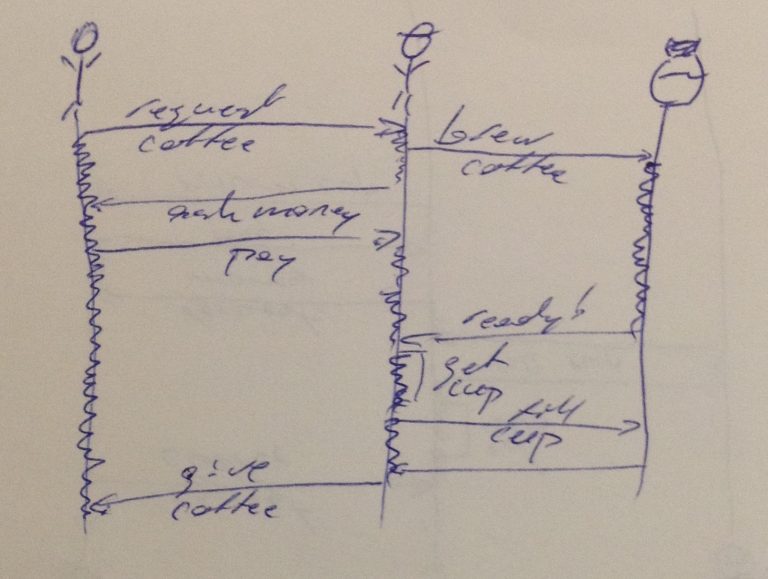 request
coffee
brew
coffee
ask money
pay
ready!
get
cup
fill
cup
give
coffee